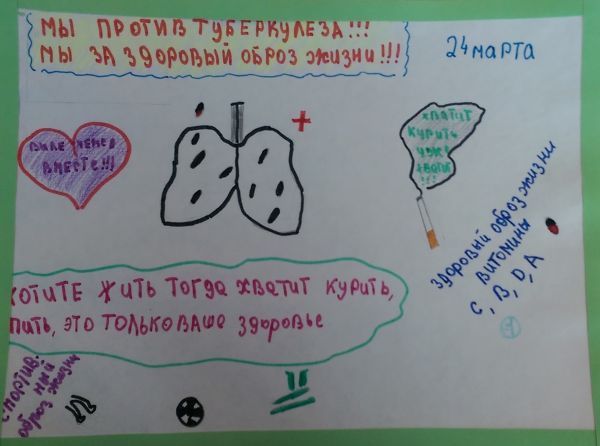 МЫ ПРОТИВ ТУБЕРКУЛЕЗА!!!
МЫ ЗА ЗДОРОВЫЙ ОБРОЗ ЖИЗНИ!!!
24 марта
ВМЕСТЕ!!!
ХВАТИТ
КУРИТЬ
УЖЕ
ХВАТИТ
!!!
ЗДОРОВЫЙ ОБРОЗ ЖИЗНИ
ВИТОМИНЫ
C, B, D, A
ХОТИТЕ ЖИТЬ ТОГДА ХВАТИТ КУРИТЬ,
ПИТЬ, ЭТО ТОЛЬКО ВАШЕ ЗДОРОВЬЕ
СПОРТИВ-
НЫЙ
ОБРОЗ ЖИЗНИ